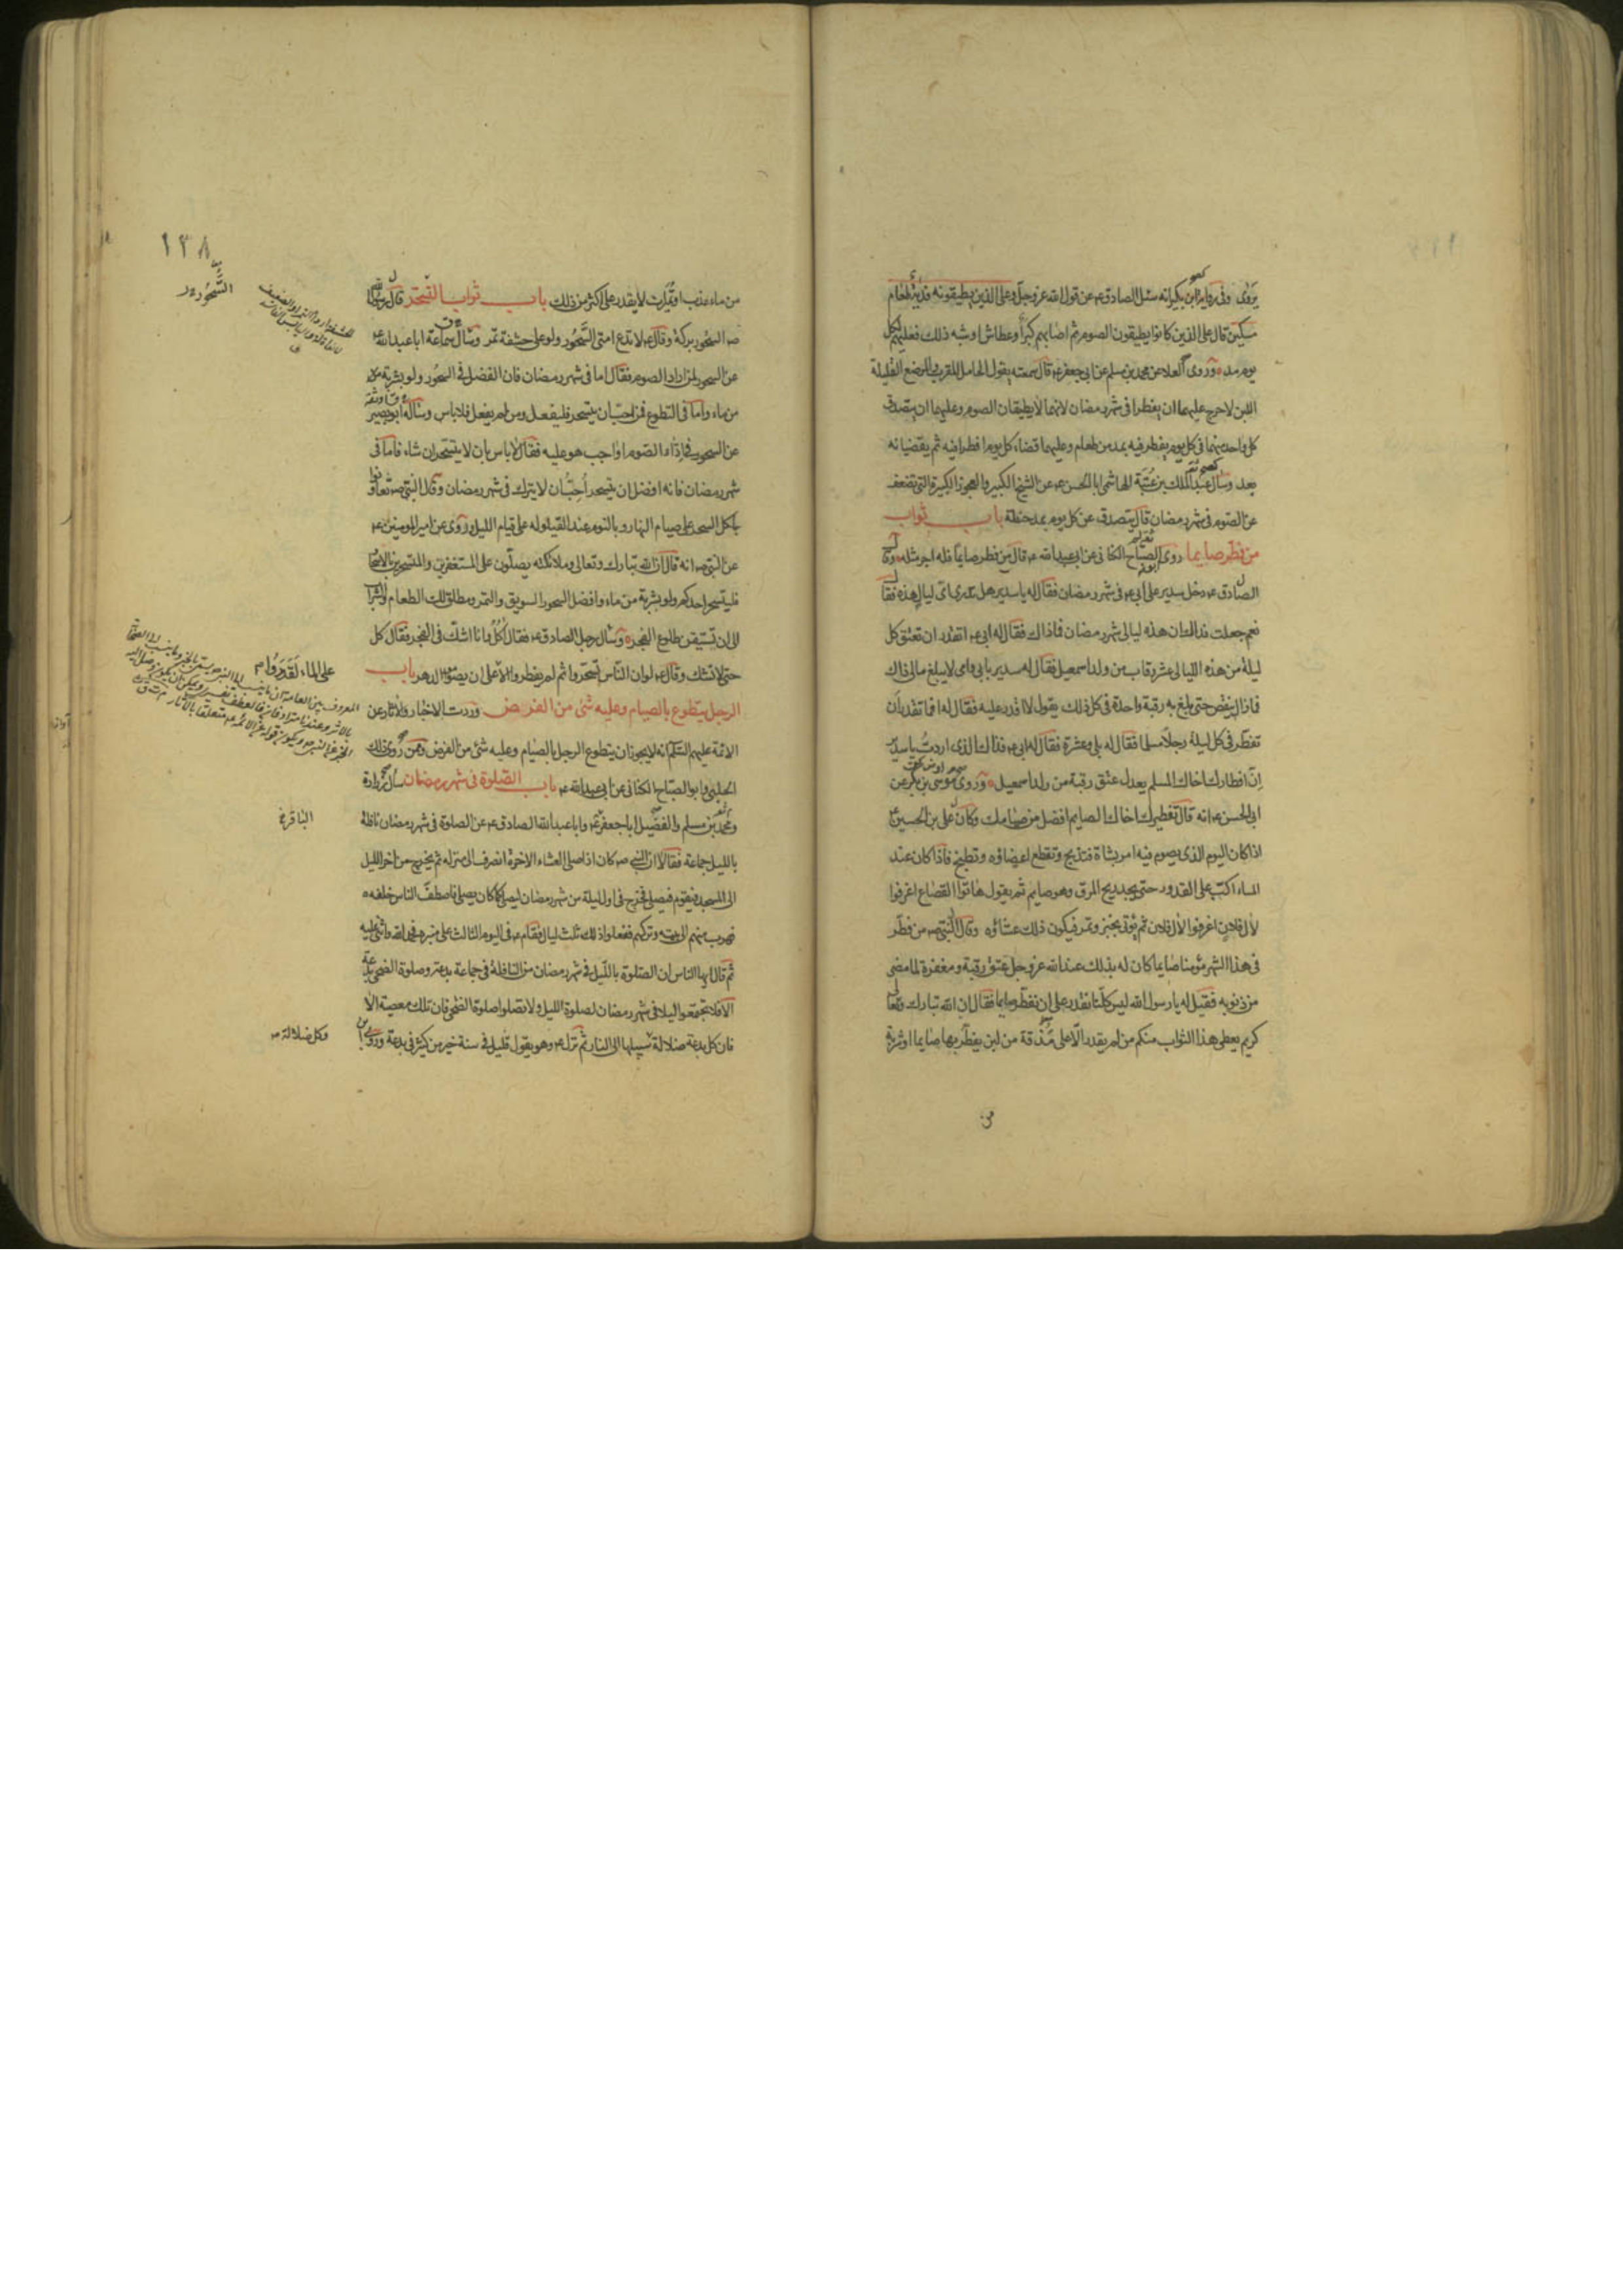 يروى وفى رواية ابن بكير انه سئل الصادق ع عن قول الله عز وجل وعلى الذين يطيقونه فدية طعام
مسكين قال على الذين كانوا يطيقون الصوم ثم اصابهم كبر او عطاش او شبه ذلك فعليهم لكل
يوم مد وروى العلا عن محمد بن مسلم عن ابى جعفر ع قال سمعته يقول الحامل المقرب والمرضع القليلة
اللبن لا حرج عليهما ان يفطرا فى شهر رمضان لانهما لا يطيقان الصوم وعليهما ان يتصدق
كل واحد منهما فى كل يوم يفطر فيه بمد من طعام وعليهما قضاء كل يوم افطرا فيه ثم يقضيانه
بعد وسأل عبد الملك بن عتبة الهاشمى ابا الحسن ع عن الشيخ الكبير والعجوز الكبيرة التى تضعف
عن الصوم فى شهر رمضان قال يتصدق عن كل يوم بمد حنطة باب ثواب
من فطر صايما روى ابو الصباح الكنانى عن ابى عبد الله ع قال من فطر صايما فله اجر مثله وقال
الصادق ع دخل سدير على ابى ع فى شهر رمضان فقال له يا سدير هل تدرى اى ليال هذه فقال
نعم جعلت فداك ان هذه ليالى شهر رمضان فما ذاك فقال له ابى ع اتقدر ان تعتق كل
ليلة من هذه الليالى عشر رقاب من ولد اسمعيل فقال له سدير بابى وامى لا يبلغ مالى ذاك
فما زال ينقص حتى بلغ به رقبة واحدة فى كل ذلك يقول لا اقدر عليه فقال له افما تقدر ان
تفطر فى كل ليلة رجلا مسلما فقال له بلى وعشرة فقال له ابى ع فذاك الذى اردت يا سدير
ان افطارك اخاك المسلم يعدل عتق رقبة من ولد اسمعيل وروى موسى بن بكر عن
ابى الحسن ع انه قال تفطيرك اخاك الصايم افضل من صيامك وكان على بن الحسين ع
اذا كان اليوم الذى يصوم فيه امر بشاة فتذبح وتقطع اعضاؤه وتطبخ فاذا كان عند
المساء اكب على القدور حتى يجد ريح المرق وهو صايم ثم يقول هاتوا القصاع اغرفوا
لال فلان اغرفوا لال فلان ثم يؤتى بخبز وتمر فيكون ذلك عشاؤه وقال النبى ص من فطر
فى هذا الشهر مؤمنا صايما كان له بذلك عند الله عز وجل عتق رقبة ومغفرة لما مضى
من ذنوبه فقيل له يا رسول الله ليس كلنا نقدر على ان نفطر صايما فقال ان الله تبارك وتعالى
كريم يعطى هذا الثواب منكم من لم يقدر الا على مذقة من لبن يفطر بها صايما او شربة
من
١٣٨
من ماء عذب او تميرات لا يقدر على اكثر من ذلك باب ثواب التسحر قال رسول الله
ص السحور بركة وقال ع لا تدع امتى السحور ولو على حشفة تمر وسأل سماعة ابا عبد الله ع
عن السحور لمن اراد الصوم فقال اما فى شهر رمضان فان الفضل فى السحور ولو بشربة
من ماء واما فى التطوع فمن احب ان يتسحر فليفعل ومن لم يفعل فلا باس وسأله ابو بصير
عن السحور لمن اراد الصوم اواجب هو عليه فقال لا باس بان لا يتسحر ان شاء فاما فى
شهر رمضان فانه افضل ان يتسحر احب ان لا يترك فى شهر رمضان وقال النبى ص تعاونوا
باكل السحر على صيام النهار وبالنوم عند القيلوله على قيام الليل وروى عن امير المؤمنين ع
عن النبى ص انه قال ان الله تبارك وتعالى وملائكته يصلون على المستغفرين والمتسحرين بالاسحار
فليتسحر احدكم ولو بشربة من ماء وافضل السحور السويق والتمر ومطلق لك الطعام والشراب
الى ان تستيقن طلوع الفجر وسأل رجل الصادق ع فقال اكل وانا اشك فى الفجر فقال كل
حتى لا تشك وقال ع لو ان الناس تسحروا ثم لم يفطروا الا على ان يصوموا الدهر باب
الرجل يتطوع بالصيام وعليه شئ من الفرض وردت الاخبار والاثار عن
الائمة عليهم السلم انه لا يجوز ان يتطوع الرجل بالصيام وعليه شئ من الفرض وممن روى ذلك
الحلبى وابو الصباح الكنانى عن ابى عبد الله ع باب الصلوة فى شهر رمضان سأل زرارة
ومحمد بن مسلم والفضيل ابا جعفر ع وابا عبد الله الصادق ع عن الصلوة فى شهر رمضان نافلة
بالليل جماعة فقالا ان النبى ص كان اذا صلى العشاء الاخرة انصرف الى منزله ثم يخرج من اخر الليل
الى المسجد فيقوم فيصلى فخرج فى اول ليلة من شهر رمضان ليصلى كما كان يصلى فاصطف الناس خلفه
فهرب منهم الى بيته وتركهم ففعلوا ذلك ثلث ليال فقام ص فى اليوم الثالث على منبره فحمد الله واثنى عليه
ثم قال ايها الناس ان الصلوة بالليل فى شهر رمضان من النافلة فى جماعة بدعة وصلوة الضحى بدعة
الا فلا تجمعوا ليلا فى شهر رمضان لصلوة الليل ولا تصلوا صلوة الضحى فان تلك معصية الا
فان كل بدعة ضلالة سبيلها الى النار ثم نزل ع وهو يقول قليل فى سنة خير من كثير فى بدعة وروى
السحور
على الماء لقدروا
الباقر ع
وكل ضلالة